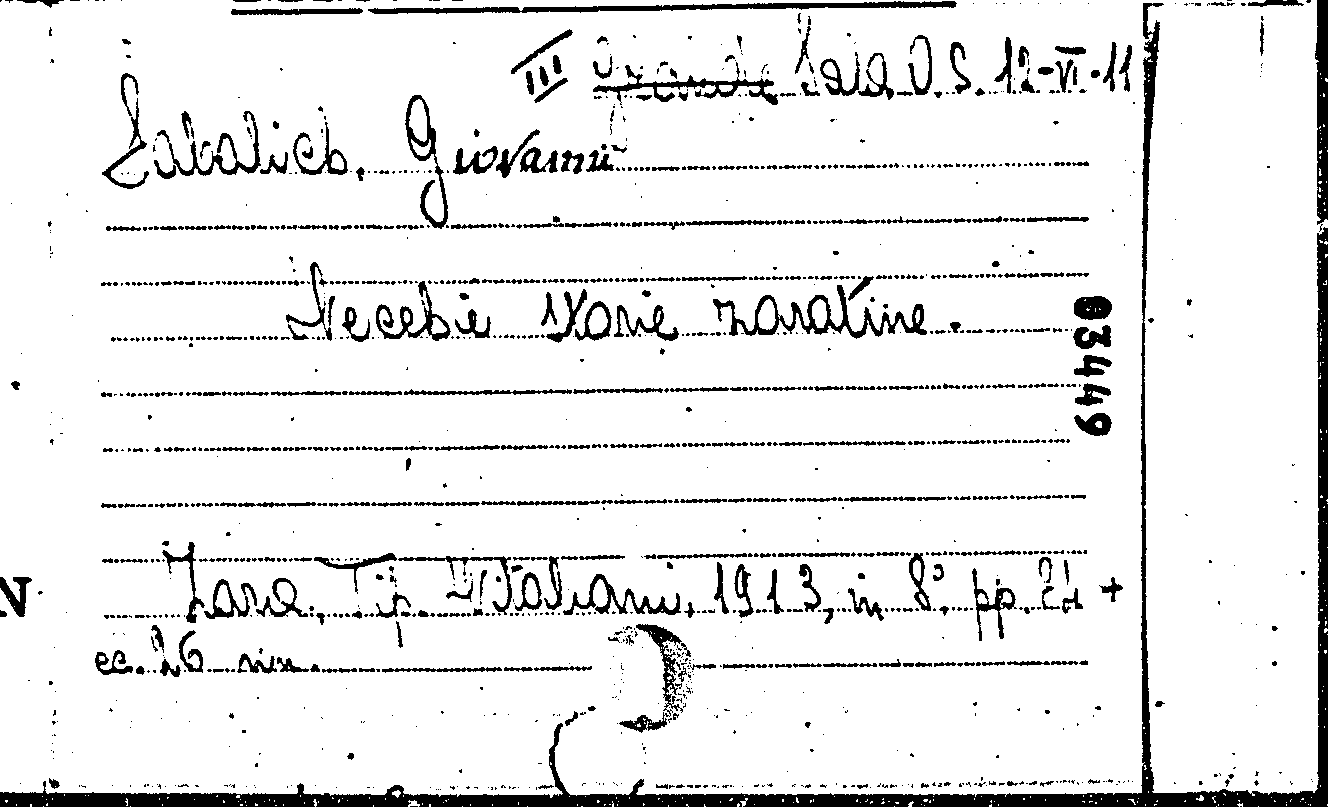 III Grande Sala O.S. 12-VI-11
Sabalich, Giovanni
Vecchie storie zaratine.
83449
Zara, Tip. Vitaliani, 1913, in 8°, pp. +
cc. 26 nn.
N